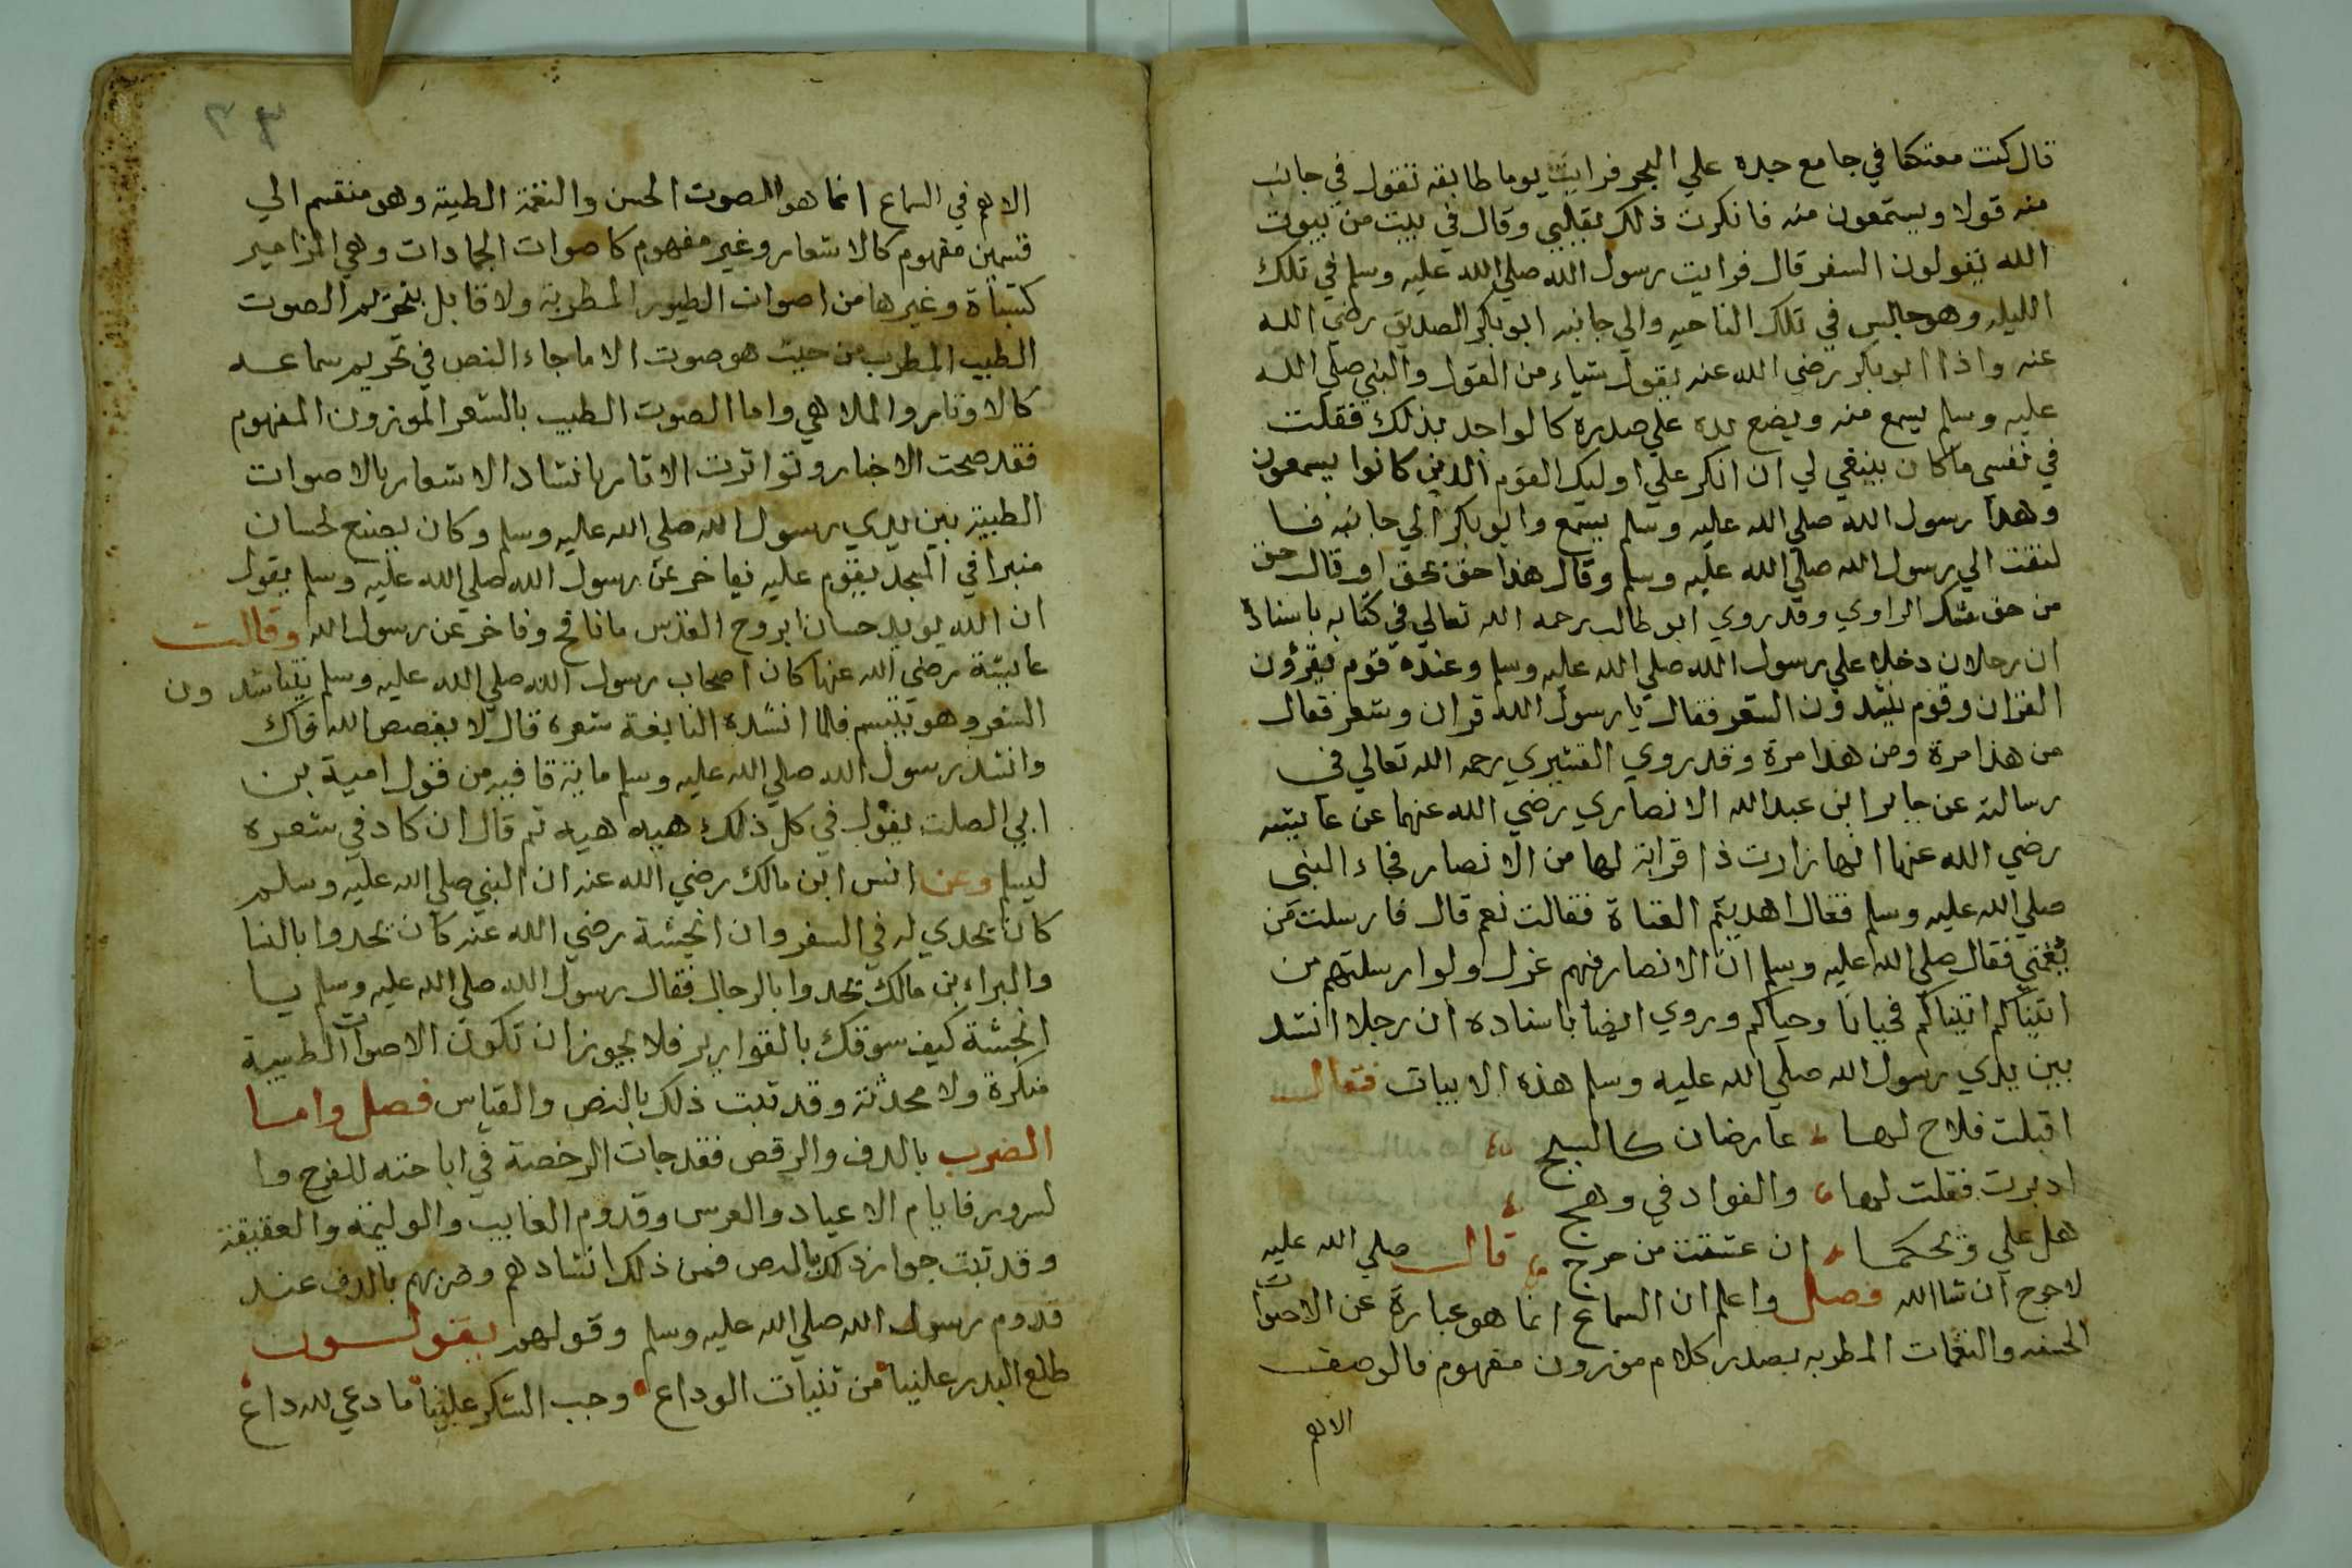 قال كنت معتكفا في جامع جده علي البحر فرايت يوما طايفه تقول في جانب
منه قولا ويستمعون منه فانكرت ذلك بقلبي وقال في بيت من بيوت
الله يقولون الشعر قال فرايت رسول الله صلي الله عليه وسلم في تلك
الليله وهو جالس في تلك الناحيه والي جانبه ابو بكر الصديق رضي الله
عنه واذا ابو بكر رضي الله عنه يقول شياء من القول والنبي صلي الله
عليه وسلم يسمع منه ويضع يده علي صدره كالواجد بذلك فقلت
في نفسي ما كان ينبغي لي ان انكر علي اوليك القوم الذين كانوا يسمعون
وهذا رسول الله صلي الله عليه وسلم يسمع وابو بكر الي جانبه فا
لتفت الي رسول الله صلي الله عليه وسلم وقال هذا حق بحق او قال حق
من حق شك الراوي وقد روي ابو طالب رحمه الله تعالي في كتابه باسناده
ان رجلان دخلا علي رسول الله صلي الله عليه وسلم وعنده قوم يقرؤن
القران وقوم ينشدون الشعر فقال يا رسول الله قران وشعر فقال
من هذا مرة ومن هذا مرة وقد روي القشيري رحمه الله تعالي في
رسالته عن جابر ابن عبد الله الانصاري رضي الله عنهما عن عايشه
رضي الله عنها انها زارت ذا قرابة لها من الانصار فجاء النبي
صلي الله عليه وسلم فقال اهديتم الفتاة فقالت نعم قال فارسلت من
يغني فقال صلي الله عليه وسلم ان الانصار فيهم غزل ولوا رسلتهم من
اتيناكم اتيناكم فحيانا وحياكم وروي ايضا باسناده ان رجلا انشد
بين يدي رسول الله صلي الله عليه وسلم هذه الابيات فقال
اقبلت فلاح لها عارضان كالسبج
ادبرت فقلت لها والفواد في وهج
هل علي ويحكما ان عشقت من حرج قال صلي الله عليه
لا حرج ان شاالله فصل واعلم ان السماع انما هو عبارة عن الاصوات
الحسنه والنغمات المطربه يصدر كلام موزون مفهوم فالوصف
الاهم
٣٣
الاهم في السماع انما هو الصوت الحسن والنغمة الطيبة وهو منقسم الي
قسمين مفهوم كالاشعار وغير مفهوم كاصوات الجمادات وهي المزامير
كتبناة وغيرها من اصوات الطيور المطربة ولا قابل بتحريم الصوت
الطيب المطرب من حيث هو صوت الا ما جاء النص في تحريم سماعه
كالاوتار والملاهي واما الصوت الطيب بالشعر الموزون المفهوم
فقد صحت الاخبار وتواترت الاثار بانشاد الاشعار بالاصوات
الطيبة بين يدي رسول الله صلي الله عليه وسلم وكان يصنع لحسان
منبرا في المسجد يقوم عليه يفاخر عن رسول الله صلي الله عليه وسلم يقول
ان الله يويد حسان بروح القدس ما نافح وفاخر عن رسول الله وقالت
عايشة رضي الله عنها كان اصحاب رسول الله صلي الله عليه وسلم يتناشدون
الشعر وهو يتبسم فلما انشده النابغة شعره قال لا يفضض الله فاك
وانشد رسول الله صلي الله عليه وسلم ماية قافيه من قول امية بن
ابي الصلت يقول في كل ذلك هيه هيه ثم قال ان كاد في شعره
ليسلم وعن انس ابن مالك رضي الله عنه ان النبي صلي الله عليه وسلم
كان يحدي له في السفر وان انجشة رضي الله عنه كان يحدوا بالنسا
والبراء بن مالك يحدوا بالرجال فقال رسول الله صلي الله عليه وسلم يا
انجشة كيف سوقك بالقوارير فلا يجوز ان تكون الاصوات الطيبة
منكرة ولا محدثة وقد ثبت ذلك بالنص والقياس فصل واما
الضرب بالدف والرقص فقد جات الرخصة في اباحته للفرح وا
لسرور فايام الاعياد والعرس وقدوم الغايب والوليمة والعقيقة
وقد ثبت جواز ذلك بالنص فمن ذلك انشادهم وضربهم بالدف عند
قدوم رسول الله صلي الله عليه وسلم وقولهم يقولون
طلع البدر علينا من ثنيات الوداع وجب الشكر علينا ما دعي لله داع